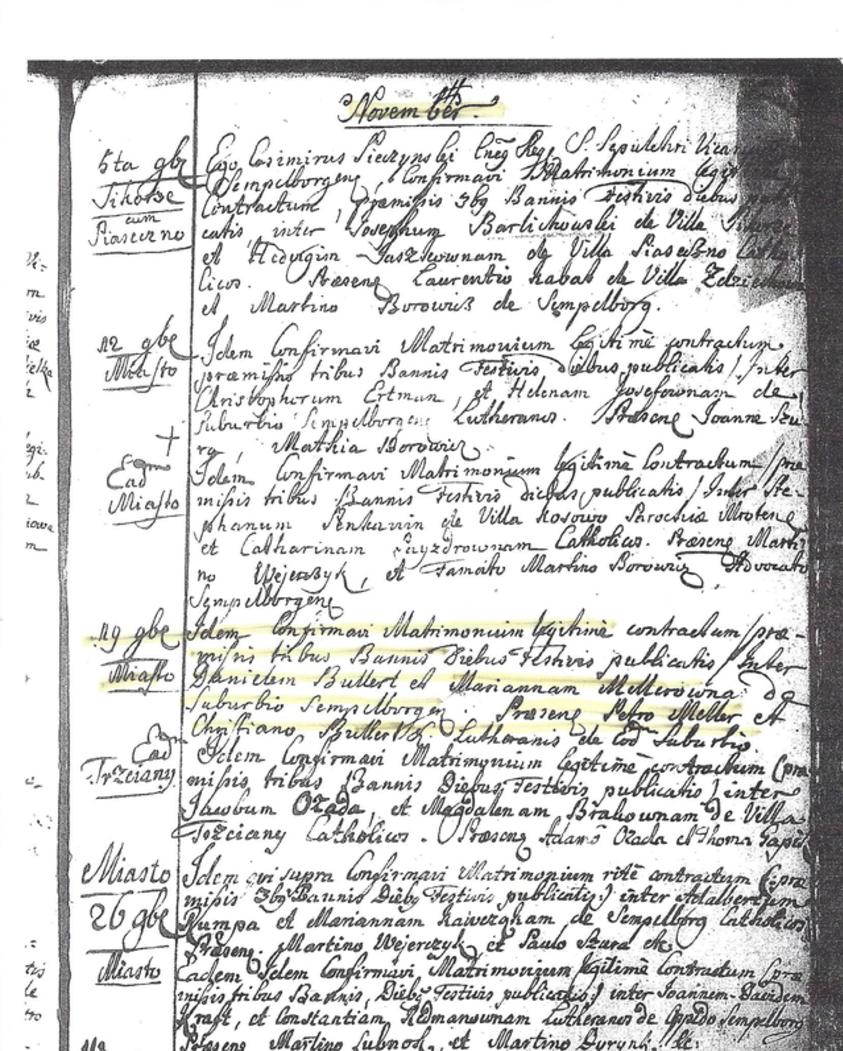 November.
5ta 9br
Sikorse
cum
Piaseczno
Ego Casimirus Pieczynski S. Sepulchri
Sempelborgens, Confirmavi Matrimonium
Contractum, præmissis 3bg Bannis Festivis diebus
catis inter Josephum Barlichowski de Villa
et Hedvigim de Villa Piaseczno
licos. Præsens Laurentio Kabat de Villa
et Martino Borowicz de Sempelborg.
12 9br
Miasto
Idem Confirmavi Matrimonium legitimè contractum
præmissis tribus Bannis Festivis diebus publicatis / Inter
Christophorum Ertman, et Helenam Josefownam de
Suburbio Sempelborgens Lutheranos. Præsens Joanne Szu-
ra, Mathia Borowicz.
Ead
Miasto
Idem Confirmavi Matrimonium legitimè Contractum / præ
missis tribus Bannis Festivis diebus publicatis / Inter Ste-
phanum de Villa Kosowo Parochiæ
et Catharinam Catholicos. Præsens Marti
no Wejerczyk, et Famato Martino Borowicz Advocato
Sempelborgens
19 9br
Miasto
Idem Confirmavi Matrimonium legitimè contractum / præ-
missis tribus Bannis Diebus Festivis publicatis / Inter
Danielem Bullert et Mariannam Mellerowna de
Suburbio Sempelborgen. Præsens Petro Meller et
Christiano Bullert Lutheranis de eod Suburbio.
Ead
Trzciany
Idem Confirmavi Matrimonium legitimè contractum (præ
missis tribus Bannis Diebus Festivis publicatis) inter
Jacobum Ozada, et Magdalenam Brakownam de Villa
Trzciany Catholicos. Præsens Adamo Ozada et Thoma
Miasto
26 9br
Miasto
Idem qui supra Confirmavi Matrimonium ritè contractum (præ
missis 3bg Bannis Diebg Festivis publicatis) inter Adalbertum
Rumpa et Mariannam de Sempelborg Catholicos
Præsens. Martino Wejerczyk et Paulo Szura etc
Eadem Idem Confirmavi, Matrimonium legitimè Contractum (præ
missis tribus Bannis, Diebg Festivis publicatis) inter Joannem Davidem
Kraft, et Constantiam Redmanownam Lutheranos de Oppido Sempelborg
Præsens Martino et Martino